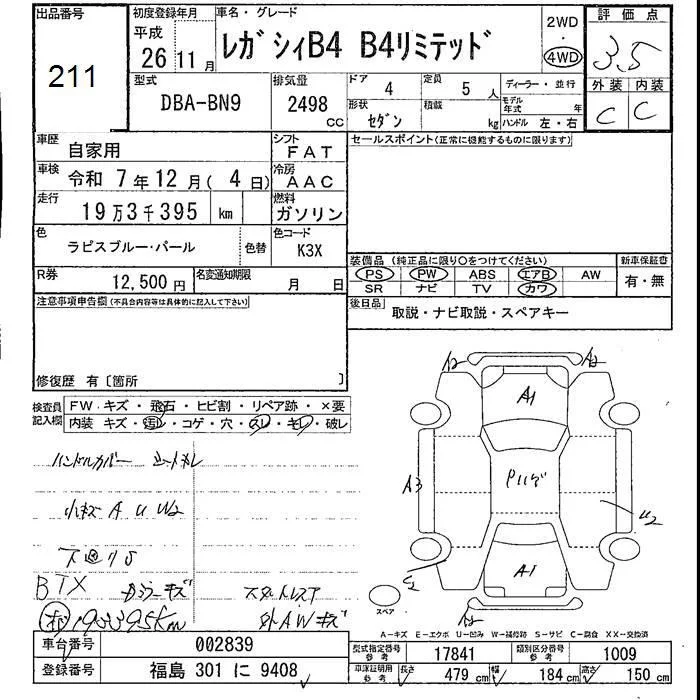 出品番号
211
初度登録年月
平成
26 11 月
車名・グレード
レガシィB4 B4リミテッド
2WD
4WD
評価点
3.5
外装 内装
C C
型式
DBA-BN9
排気量
2498
CC
ドア
4
定員
5 人
形状
セダン
積載
kg
ディーラー・並行
モデル年式 年
ハンドル 左・右
車歴
自家用
シフト
FAT
セールスポイント(正常に機能するものに限ります)
車検
令和 7 年 12 月 ( 4 日)
冷房
AAC
走行
19万3千395 km
燃料
ガソリン
色
ラピスブルー・パール
色替
色コード
K3X
装備品 (純正品に限り○をつけてください)
新車保証書
PS PW ABS エアB AW
有・無
SR ナビ TV カワ
R券
12,500 円
名変通知期限
月 日
後日品
取説・ナビ取説・スペアキー
注意事項申告欄(不具合内容等は具体的に記入して下さい)
修復歴 有〔箇所 〕
検査員記入欄
FW キズ・飛石・ヒビ割・リペア跡・×要
内装 キズ・汚レ・コゲ・穴・スレ・キレ・破レ
ハンドルカバー シートキレ
小キズ A U W2
下廻りS
BTX
19339.5Km
外AWキズ
A2 A2
A1
A3
U2
A1
スペア
A-キズ E-エクボ U-凹み W-補修跡 S-サビ C-腐食 XX-交換済
車台番号
002839
型式指定番号 参考
17841
類別区分番号 参考
1009
登録番号
福島 301 に 9408
車庫証明用 参考
長さ 479 cm 幅 184 cm 高さ 150 cm